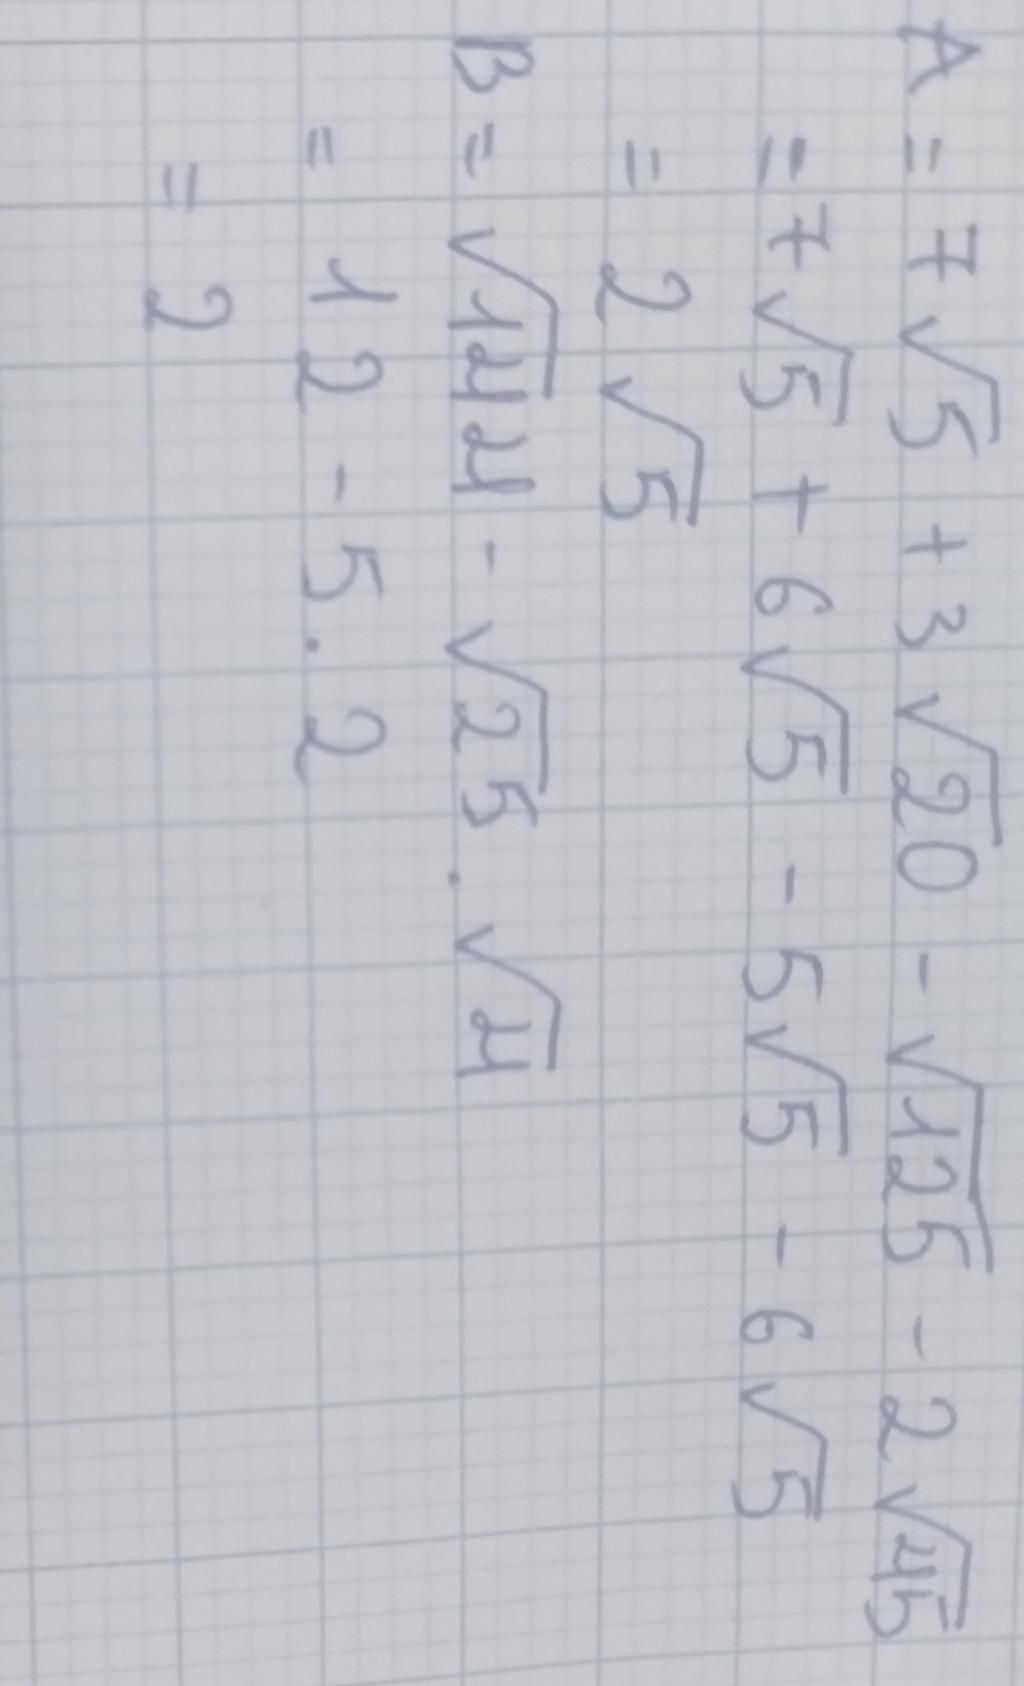 A = 7√5 + 3√20 - √125 - 2√45
= 7√5 + 6√5 - 5√5 - 6√5
= 2√5
B = √144 - √25 . √4
= 12 - 5 . 2
= 2